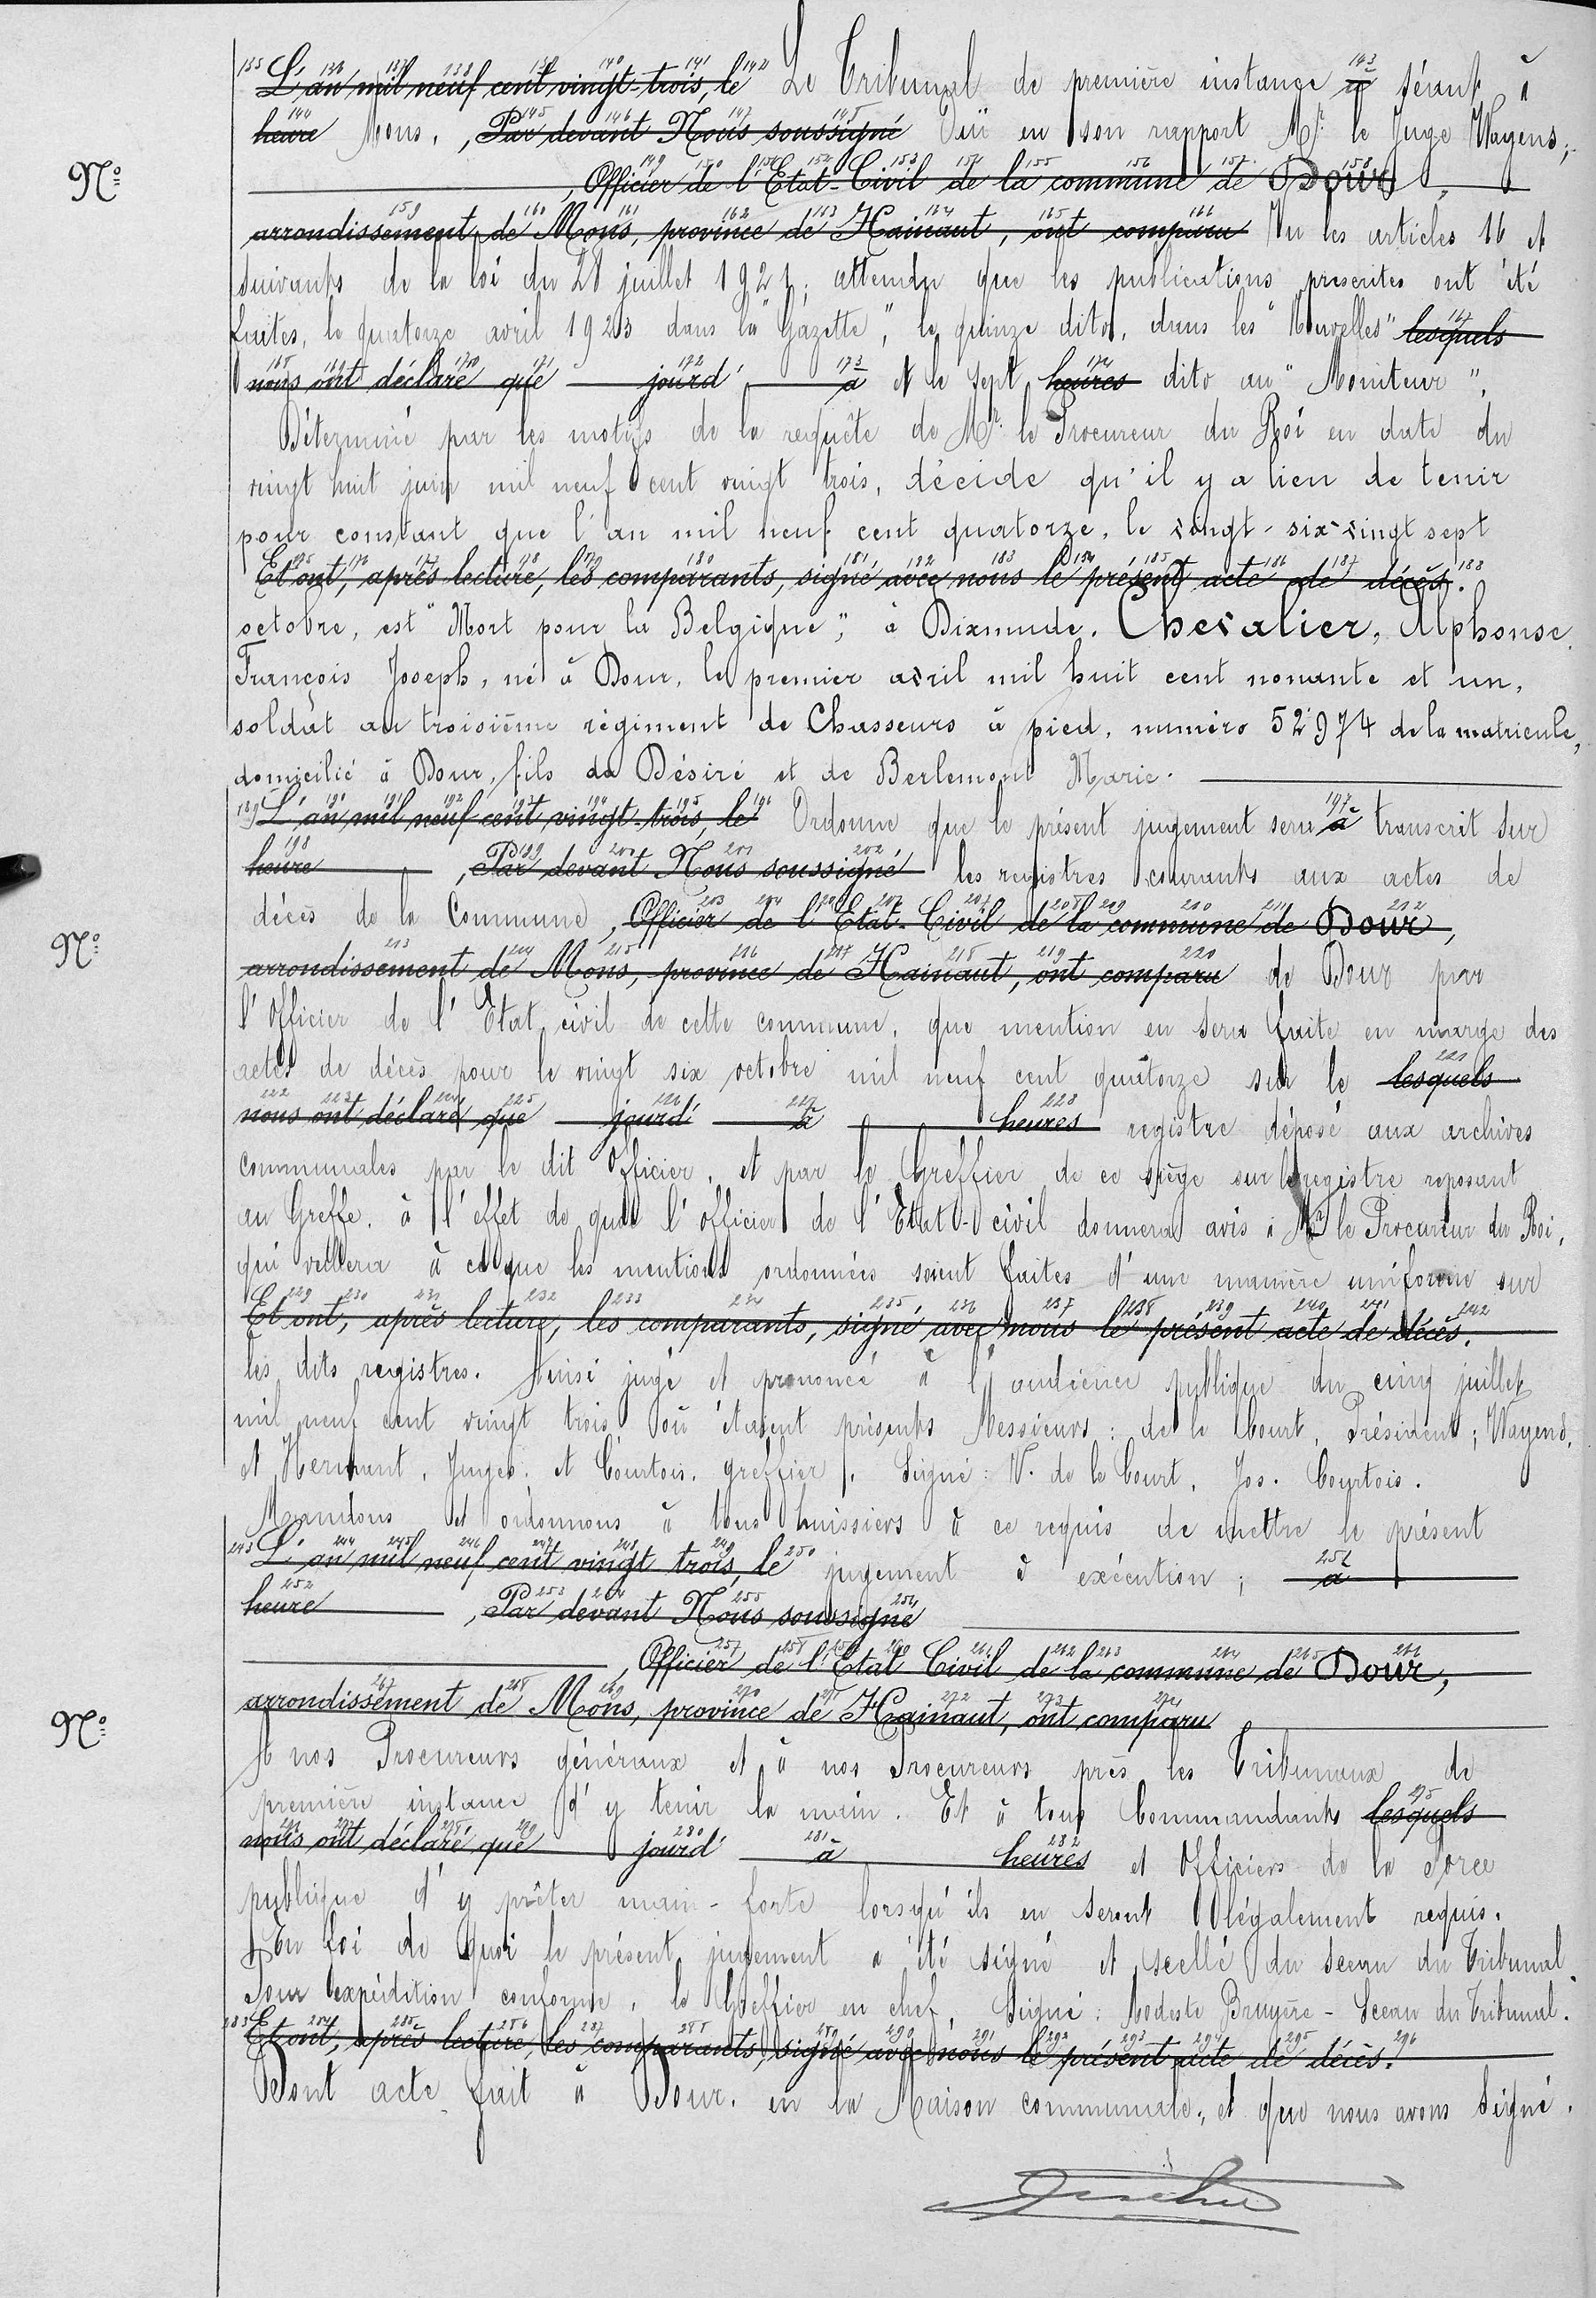 L'an mil neuf cent vingt-trois, le Le Tribunal de première instance à séant à
heure Mons, , Par devant Nous soussigné Ouï en son rapport Mr. le Juge Wagens,
N° , Officier de l'Etat-Civil de la commune de Dour,
arrondissement de Mons, province de Hainaut, ont comparu Vu les articles 16 et
suivants de la loi du 28 juillet 1921; attendu que les publications prescrites ont été
faites, le quatorze avril 1923 dans la "Gazette", le quinze dito, dans les "Nouvelles" lesquels
nous ont déclaré que jourd' à et le sept heures dito au "Moniteur".
Déterminé par les motifs de la requête de Mr. le Procureur du Roi en date du
vingt huit juin mil neuf cent vingt trois, décide qu'il y a lieu de tenir
pour constant que l'an mil neuf cent quatorze, le vingt-six-vingt sept
Et ont, après lecture, les comparants, signé avec nous le présent acte de décès.
octobre, est "Mort pour la Belgique", à Dixmude. Chevalier, Alphonse,
François Joseph, né à Dour, le premier avril mil huit cent nonante et un,
soldat au troisième régiment de Chasseurs à pied, numéro 52974 de la matricule,
domicilié à Dour, fils de Désiré et de Berlemont Marie.
L'an mil neuf cent vingt-trois, le Ordonne que le présent jugement sera à transcrit sur
heure , Par devant Nous soussigné les registres courants aux actes de
décès de la Commune , Officier de l'Etat-Civil de la commune de Dour,
N° arrondissement de Mons, province de Hainaut, ont comparu de Dour par
l'Officier de l'Etat civil de cette commune, que mention en sera faite en marge des
actes de décès pour le vingt six octobre mil neuf cent quatorze sur le lesquels
nous ont déclaré que jourd' à heures registre déposé aux archives
communales par le dit Officier, et par le Greffier de ce siège sur le registre reposant
au Greffe, à l'effet de quoi l'officier de l'Etat-civil donnera avis à Mr le Procureur du Roi,
qui veillera à ce que les mentions ordonnées soient faites d'une manière uniforme sur
Et ont, après lecture, les comparants, signé avec nous le présent acte de décès.
les dits registres. Ainsi jugé et prononcé à l'audience publique du cinq juillet
mil neuf cent vingt trois, où étaient présents Messieurs: de le Court, Président; Wagens,
et Hermant, Juges, et Courtois, greffier. Signé: V. de le Court, Jos. Courtois.
Mandons et ordonnons à tous huissiers à ce requis de mettre le présent
L'an mil neuf cent vingt trois, le jugement à exécution; à
heure , Par devant Nous soussigné
, Officier de l'Etat Civil de la commune de Dour,
N° arrondissement de Mons, province de Hainaut, ont comparu
A nos Procureurs généraux et à nos Procureurs près les Tribunaux de
première instance d'y tenir la main. Et à tous Commandants lesquels
nous ont déclaré que jourd' à heures et Officiers de la Force
publique d'y prêter main-forte lorsqu'ils en seront légalement requis.
En foi de quoi le présent jugement a été signé et scellé du sceau du Tribunal
Pour expédition conforme, le Greffier en chef, Signé: Modeste Bruyère - Sceau du Tribunal.
Et ont, après lecture, les comparants, signé avec nous le présent acte de décès.
Dont acte fait à Dour, en la Maison communale, et que nous avons signé.